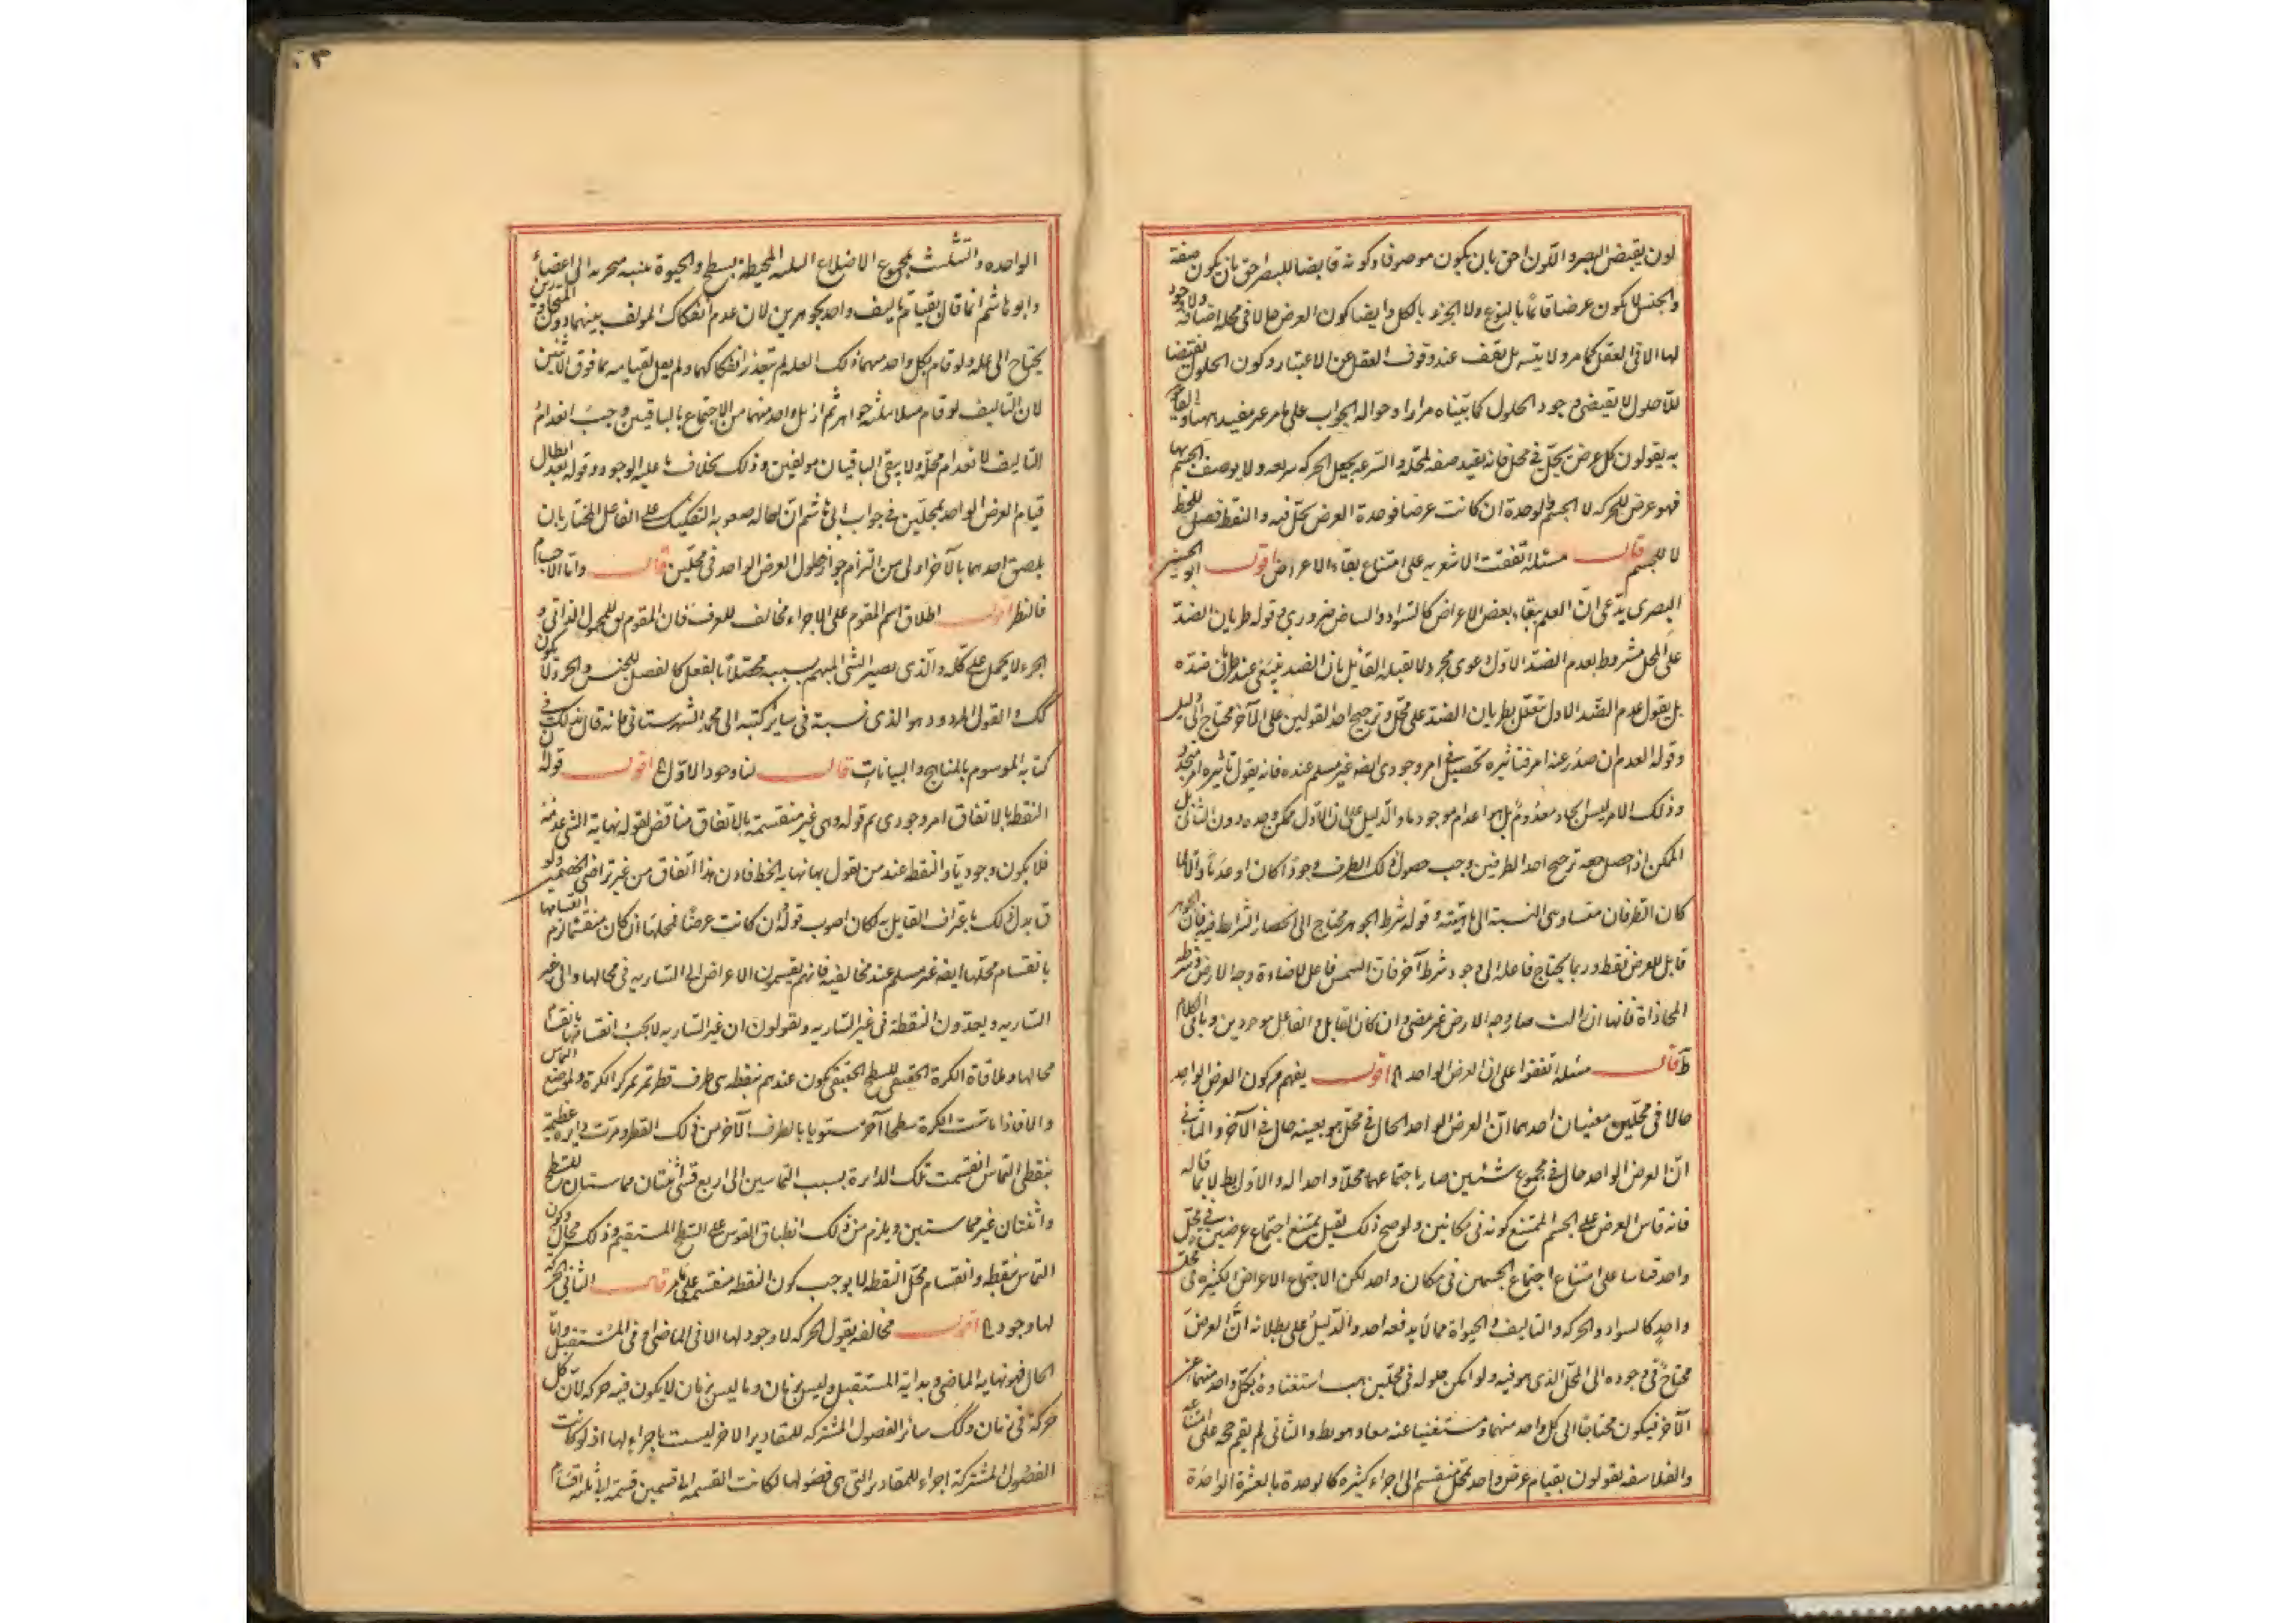 لون يقبض البصر واللون احق بان يكون موصوفا وكونه قابضا للبصر احق بان يكون صفة
والجنس لا يكون عرضا قائما بالنوع ولا الجزء بالكل وايضا كون العرض حالا فى محله اضافة ولا وجود
لها الا فى العقل كما مر ولا يتسه بل يقف عند وقوف العقل عن الاعتبار وكون الحلول نقيضا
للاحلول لا يقتضى وجود الحلول كما بيناه مرارا وحوالة الجواب على ما مر غير مفيد ههنا والقائلون
به يقولون كل عرض يحل فى محل فانه يفيد صفة لمحله والسرعة يجعل الحركة سريعة ولا يوصف الجسم بها
فهو عرض للحركة لا للجسم والوحدة ان كانت عرضا فوحدة العرض يحل فيه والنقطة فصل للخط
لا للجسم قال مسئلة اتفقت الاشعرية على امتناع بقاء الاعراض اقول ابو الحسين
البصرى يدعى ان العلم ببقاء بعض الاعراض كالسواد والبياض ضرورى وقوله طريان الضد
على المحل مشروط بعدم الضد الاول دعوى مجرد لا يقبله القائل بان الضد ينتفى عند طريان ضده
بل يقول عدم الضد الاول معلل بطريان الضد على محله وترجيح احد القولين على الآخر محتاج الى دليل
وقوله العدم ان صدر عنه امر فتاثيره تحصيل امر وجودى ايضه غير مسلم عنده فانه يقول تاثيره امر متجدد
وذلك الامر ليس ايجاد معدوم بل هو اعدام موجود ما والدليل على ان الاول ممكن وحده دون الثانى بل
الممكن اذا حصل معه ترجيح احد الطرفين وجب حصول ذلك الطرف وجودا كان او عدما والا لما
كان الطرفان متساوى النسبة الى ماهيته وقوله شرط الجوهر محتاج الى انحصار الشرائط فيه فان الجوهر
قابل للعرض فقط وربما يحتاج فاعله الى وجود شرط آخر فان الشمس فاعل لاضاءة وجه الارض بشرط
المحاذاة فانها ان زالت صار وجه الارض غير مضى وان كان القابل والفاعل موجودين وباقى الكلام
ظ قال مسئلة اتفقوا على ان العرض الواحد الخ اقول يفهم من كون العرض الواحد
حالا فى محلين معنيان احدهما ان العرض الواحد الحال فى محل هو بعينه حال فى الآخر والثانى
ان العرض الواحد حال فى مجموع شيئين صارا باجتماعهما محلا واحدا له والاول بط لا لما قاله
فانه قاس العرض على الجسم الممتنع كونه فى مكانين ولو صح ذلك لقيل يمتنع اجتماع عرضين فى محل
واحد قياسا على امتناع اجتماع الجسمين فى مكان واحد لكن الاجتماع الاعراض الكثيرة فى محل
واحد كالسواد والحركة والتاليف والحيوة مما لا يدفعه احد والدليل على بطلانه ان العرض
محتاج فى وجوده الى المحل الذى هو فيه ولو امكن حلوله فى محلين وجب استغناوه بكل واحد منهما عن
الآخر فيكون محتاجا الى كل واحد منهما ومستغنيا عنه معا وهو بط والثانى لم يقم حجة على امتناعه
والفلاسفة يقولون بقيام عرض واحد بمحل منقسم الى اجزاء كثيرة كالوحدة بالعشرة الواحدة
الواحده والتثليث بمجموع الاضلاع الثلثة المحيطة بسطح والحيوة ببنية متجزية الى اعضاء
وابو هاشم انما قال بقيام تاليف واحد بجوهرين لان عدم انفكاك المؤلف بينهما دون المتجاورين
يحتاج الى علة ولو قام بكل واحد منهما ذلك العلة لم يتعذر انفكاكهما ولم يقل بقيامه بما فوق الاثنين
لان التاليف لو قام مثلا بثلثة جواهر ثم ازيل واحد منهما من الاجتماع بالباقيين وجب انعدام
التاليف لانعدام محله ولا يبقى الباقيان مولفين وذلك بخلاف ما عليه الوجود وقوله بعد ابطال
قيام العرض الواحد بمحلين فى جواب ابى هاشم ان احالة صعوبة التفكيك على الفاعل المختار بان
يلصق احدهما بالآخر اولى من التزام جواز حلول العرض الواحد فى محلين قال واما الاجسام
فالنظر اقول اطلاق اسم المقوم على الاجزاء مخالف للعرف فان المقوم يق للمحمول الذاتى و
الجزء لا يحمل على كله والذى يصير الشى المبهم بسببه محصلا بالفعل كالفصل للجنس والجزء لا يكون
كك والقول المردود هو الذى نسبه فى سائر كتبه الى محمد الشهرستانى فانه قال بذلك فى
كتابه الموسوم بالمناهج والبيانات قال لنا وجود الاول الخ اقول قوله
النقطة بالاتفاق امر وجودى ثم قوله وهى غير منقسمة بالاتفاق مناقض لقوله نهاية الشى عدمه
فلا يكون وجوديا والنقطة عند من يقول بها نهاية الخط فاذن هذا اتفاق من غير تراضى الخصمين ولو
قا بدل ذلك باعتراف القايل به لكان اصوب قوله ان كانت عرضا فمحلها ان كان منقسما لزم انقسامها
بانقسام محلها ايضه غير مسلم عند مخالفيه فانهم يقسمون الاعراض الى السارية فى محالها والى غير
السارية ويعدون النقطة فى غير السارية ويقولون ان غير السارية لا يجب انقسامها بانقسام
محالها وملاقاة الكرة الحقيقى للسطح الحقيقى يكون عندهم بنقطة هى طرف قطر تمر بمركز الكرة وموضع التماس
والا فاذا ماست الكرة سطحا آخر مستويا بالطرف الآخر من ذلك القطر ومرت دايرة عظيمة
بنقطتى التماس انقسمت تلك الدايرة بسبب التماسين الى اربع قسى اثنتان مماستان للسطح
واثنتان غير مماستين ويلزم من ذلك انطباق القوس على السطح المستقيم وذلك محال وكون
التماس بنقطة وانقسام محل النقطة لا يوجب كون النقطة منقسمة على ما مر قال الثانى الحركة
لها وجود الخ اقول مخالفه يقول الحركة لا وجود لها الا فى الماضى او فى المستقبل واما
الحال فهو نهاية الماضى وبداية المستقبل وليس بزمان وما ليس بزمان لا يكون فيه حركة لان كل
حركة فى زمان وكك سائر الفصول المشتركة للمقادير الاخر ليست باجزاء لها اذ لو كانت
الفصول المشتركة اجزاء للمقادير التى هى فصولها لكانت القسمة الى قسمين قسمة الى ثلثة اقسام